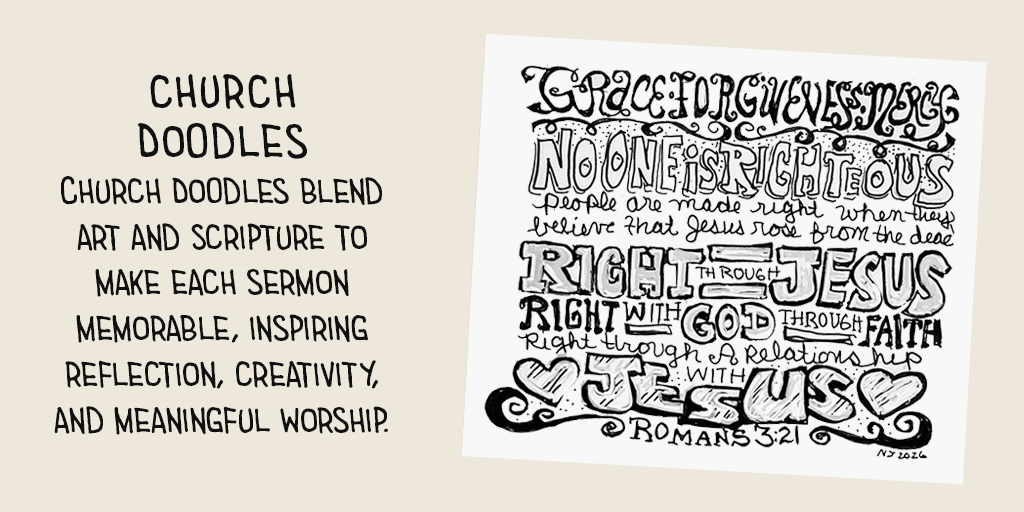 CHURCH
DOODLES
CHURCH DOODLES BLEND
ART AND SCRIPTURE TO
MAKE EACH SERMON
MEMORABLE, INSPIRING
REFLECTION, CREATIVITY,
AND MEANINGFUL WORSHIP.
GRACE:FORGIVENESS:MERCY
NO ONE is RIGHTEOUS
people are made right when they
believe that Jesus rose from the dead
RIGHT THROUGH JESUS
RIGHT WITH GOD THROUGH FAITH
Right through A Relationship
WITH
JESUS
ROMANS 3:21
NJ 2026